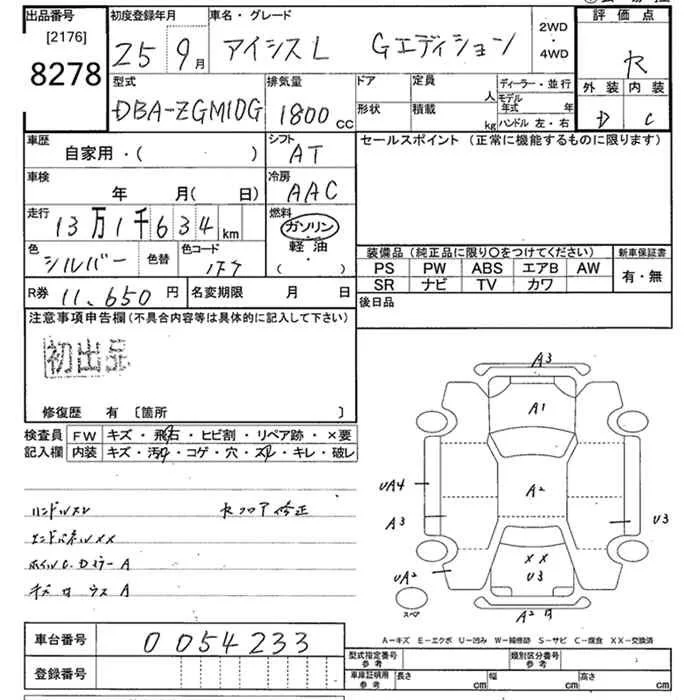 出品番号 初度登録年月 車名・グレード 評価点
[2176]
8278
25 9月 アイシスL Gエディション 2WD・4WD R
型式 排気量 ドア 定員 人 ディーラー・並行 外装 内装
DBA-ZGM10G 1800cc 形状 積載 kg モデル年式 年 D C
ハンドル 左・右
車歴 シフト セールスポイント (正常に機能するものに限ります)
自家用・( ) AT
車検 冷房
年 月( 日) AAC
走行 燃料
13万1千634km ガソリン
軽油
( )
色 色替 色コード
シルバー
装備品 (純正品に限り○をつけてください) 新車保証書
PS PW ABS エアB AW 有・無
SR ナビ TV カワ
R券 11,650円 名変期限 月 日 後日品
注意事項申告欄(不具合内容等は具体的に記入して下さい)
初出品
修復歴 有 〔箇所 〕
検査員 FW キズ・飛石・ヒビ割・リペア跡・×要
記入欄 内装 キズ・汚れ・コゲ・穴・スレ・キレ・破レ
ハンドルスレ Rフロア修正
エンドパネルXX
ホイルC.Dミラー A
A
A3
A1
UA4 A2
A3 U3
XX
UA2 U3
スペア A2
A-キズ E-エクボ U-凹み W-補修跡 S-サビ C-腐食 XX-交換済
車台番号 0054233
登録番号
型式指定番号 参考 類別区分番号 参考
車庫証明用 参考 長さ cm 幅 cm 高さ cm